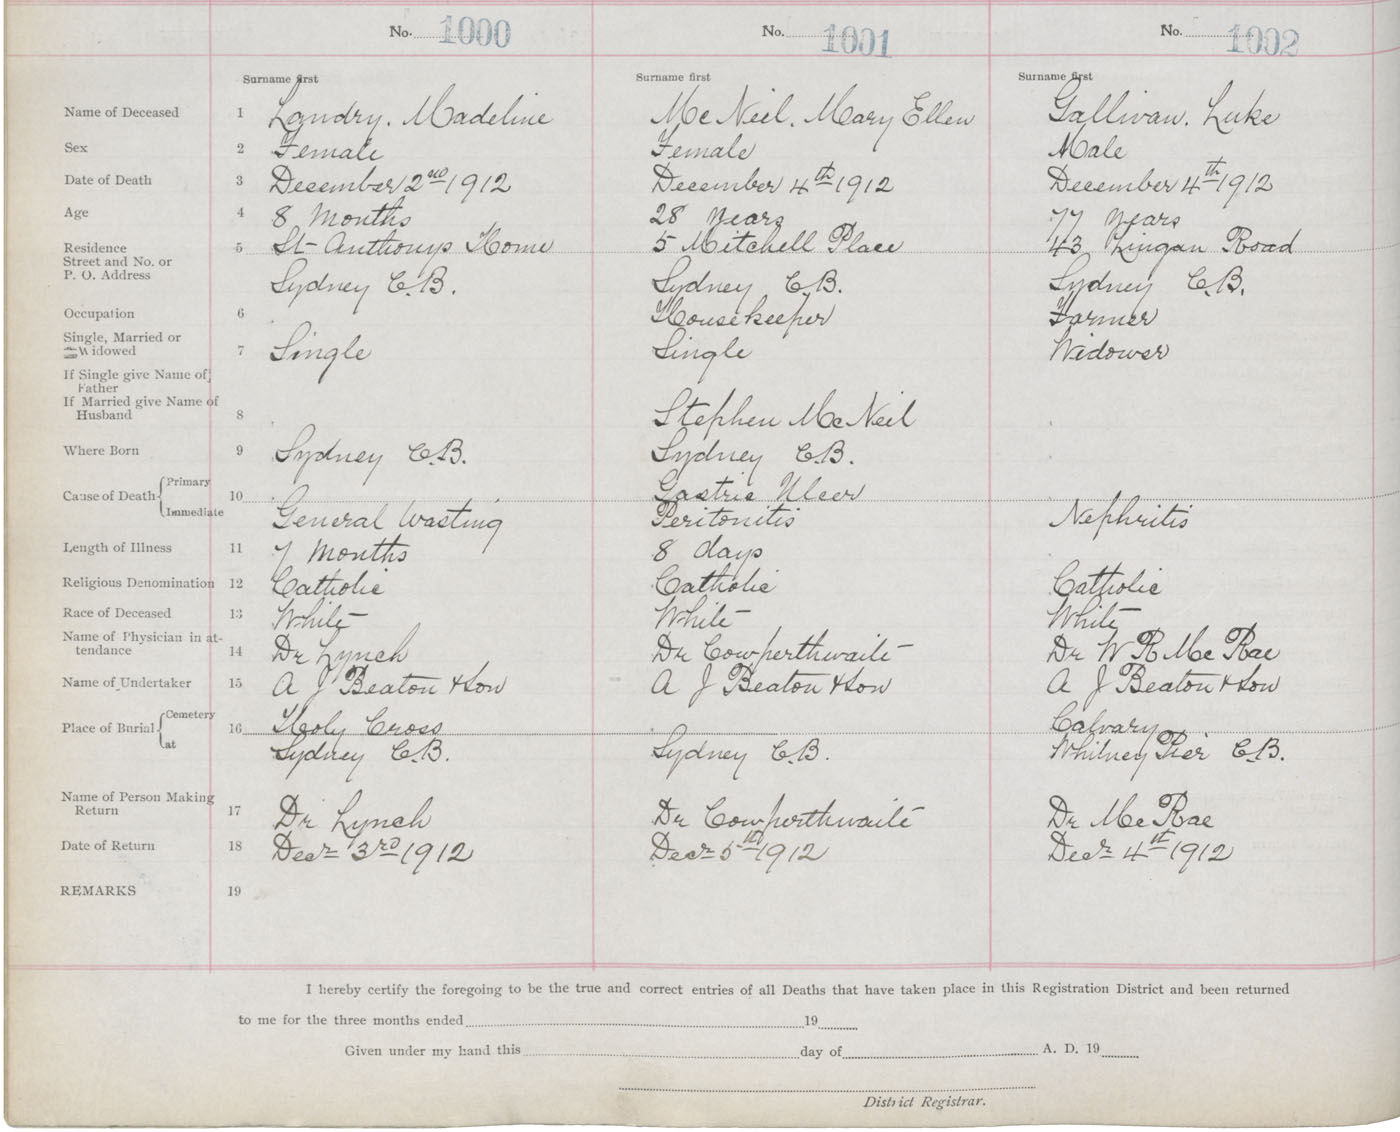 No. 1000 No. 1001 No. 1002
Surname first Surname first Surname first
Name of Deceased 1 Landry. Madeline McNeil. Mary Ellen Gallivan. Luke
Sex 2 Female Female Male
Date of Death 3 December 2nd 1912 December 4th 1912 December 4th 1912
Age 4 8 Months 28 Years 77 Years
Residence 5 St Anthonys Home 5 Mitchell Place 43 Lingan Road
Street and No. or
P. O. Address Sydney C.B. Sydney C.B. Sydney C.B.
Occupation 6 Housekeeper Farmer
Single, Married or
Widowed 7 Single Single Widower
If Single give Name of
Father
If Married give Name of
Husband 8 Stephen McNeil
Where Born 9 Sydney C.B. Sydney C.B.
Primary Gastric Ulcer
Cause of Death 10
Immediate General Wasting Peritonitis Nephritis
Length of Illness 11 7 Months 8 days
Religious Denomination 12 Catholic Catholic Catholic
Race of Deceased 13 White White White
Name of Physician in at-
tendance 14 Dr Lynch Dr Cowperthwaite Dr W R McRae
Name of Undertaker 15 A J Beaton & Son A J Beaton & Son A J Beaton & Son
Cemetery Holy Cross Calvary
Place of Burial 16
at Sydney C.B. Sydney C.B. Whitney Pier C.B.
Name of Person Making
Return 17 Dr Lynch Dr Cowperthwaite Dr McRae
Date of Return 18 Decr 3rd 1912 Decr 5th 1912 Decr 4th 1912
REMARKS 19
I hereby certify the foregoing to be the true and correct entries of all Deaths that have taken place in this Registration District and been returned
to me for the three months ended 19
Given under my hand this day of A. D. 19
District Registrar.